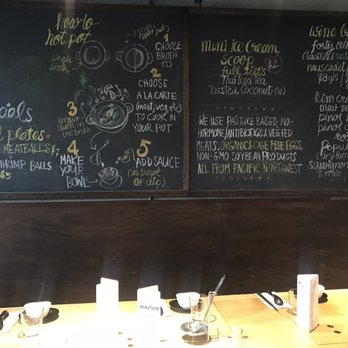 how to
hot pot
single
broth
1
CHOOSE
BROTH
(S)
2
CHOOSE
A LA CARTE
(meat, veg, etc)
TO COOK IN
YOUR POT
3
the broth
4
MAKE
YOUR
BOWL
5
ADD SAUCE
(in bowl
or dip)
cials
plates
MEATBALLS $7
SHRIMP BALLS
$5
mini ice cream
scoop $2
Thai Iced Tea
Toasted Coconut (V)
WE USE PASTURE BASED NO-
HORMONE/ANTIBIOTICS & VEG FED
MEATS, ORGANIC & CAGE FREE EGGS,
NON-GMO SOYBEAN PRODUCTS
ALL FROM PACIFIC NORTHWEST
wine b
pinot
pinot
Popu
sauvignon